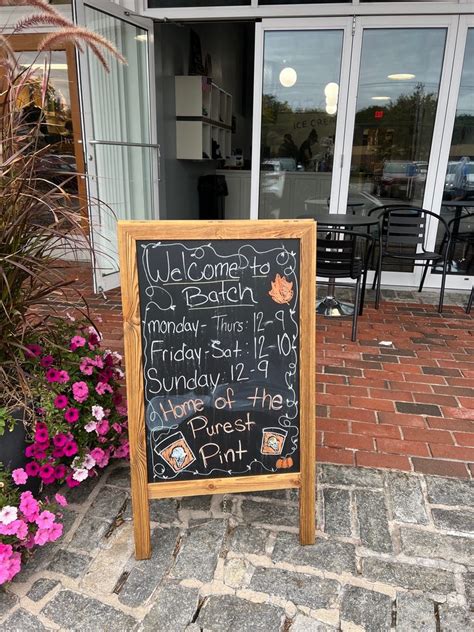 ICE CRE
Welcome to
Batch
monday - Thurs: 12-9
Friday - Sat: 12-10
Sunday: 12-9
Home of the
Purest
Pint